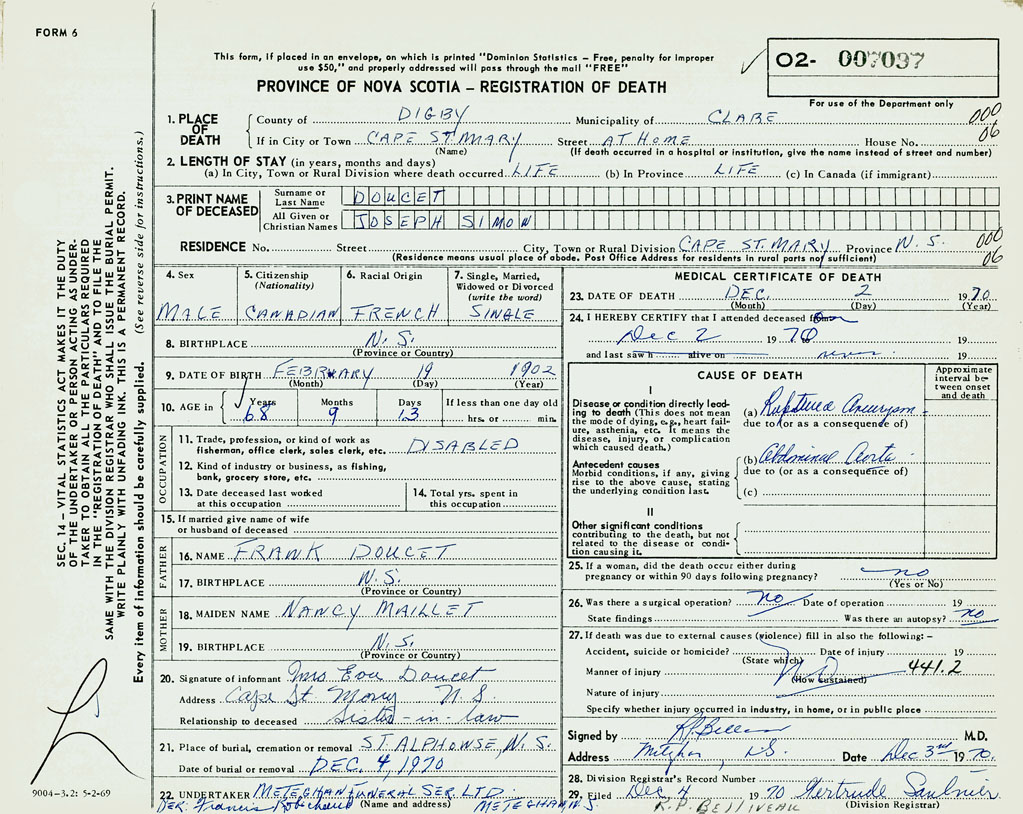 FORM 6
This form, if placed in an envelope, on which is printed "Dominion Statistics – Free, penalty for improper
use $50," and properly addressed will pass through the mail "FREE"
02- 007097
PROVINCE OF NOVA SCOTIA – REGISTRATION OF DEATH
For use of the Department only
1. PLACE OF DEATH County of DIGBY Municipality of CLARE 000
If in City or Town CAPE ST. MARY Street AT HOME House No. 06
(Name) (If death occurred in a hospital or institution, give the name instead of street and number)
2. LENGTH OF STAY (in years, months and days)
(a) In City, Town or Rural Division where death occurred LIFE (b) In Province LIFE (c) In Canada (if immigrant)
3. PRINT NAME OF DECEASED Surname or Last Name DOUCET
All Given or Christian Names JOSEPH SIMON
RESIDENCE No. Street City, Town or Rural Division CAPE ST. MARY Province N. S. 000
(Residence means usual place of abode. Post Office Address for residents in rural parts not sufficient) 06
4. Sex 5. Citizenship (Nationality) 6. Racial Origin 7. Single, Married, Widowed or Divorced (write the word)
MALE CANADIAN FRENCH SINGLE
8. BIRTHPLACE N. S.
(Province or Country)
9. DATE OF BIRTH FEBRUARY 19 1902
(Month) (Day) (Year)
10. AGE in Years Months Days If less than one day old
68 9 13 hrs. or min.
OCCUPATION
11. Trade, profession, or kind of work as
fisherman, office clerk, sales clerk, etc. DISABLED
12. Kind of industry or business, as fishing,
bank, grocery store, etc.
13. Date deceased last worked
at this occupation
14. Total yrs. spent in
this occupation
15. If married give name of wife
or husband of deceased
FATHER
16. NAME FRANK DOUCET
17. BIRTHPLACE N. S.
(Province or Country)
MOTHER
18. MAIDEN NAME NANCY MAILLET
19. BIRTHPLACE N. S.
(Province or Country)
20. Signature of informant Mrs Eva Doucet
Address Cape St Mary N. S.
Relationship to deceased Sister-in-law
21. Place of burial, cremation or removal ST. ALPHONSE, N. S.
Date of burial or removal DEC. 4, 1970
22. UNDERTAKER METEGHAN FUNERAL SER. LTD.
PER: Francis Robichaud (Name and address) METEGHAN N. S.
MEDICAL CERTIFICATE OF DEATH
23. DATE OF DEATH DEC. 2 1970
(Month) (Day) (Year)
24. I HEREBY CERTIFY that I attended deceased from
Dec 2 1970 19
and last saw h alive on never 19
CAUSE OF DEATH
Approximate interval between onset and death
I
Disease or condition directly leading to death (This does not mean the mode of dying, e.g., heart failure, asthenia, etc. It means the disease, injury, or complication which caused death.)
(a) Ruptured Aneurysm
due to (or as a consequence of)
Antecedent causes
Morbid conditions, if any, giving rise to the above cause, stating the underlying condition last.
(b) Abdominal Aorta
due to (or as a consequence of)
(c)
II
Other significant conditions contributing to the death, but not related to the disease or condition causing it.
25. If a woman, did the death occur either during
pregnancy or within 90 days following pregnancy? no
(Yes or No)
26. Was there a surgical operation? no Date of operation 19
State findings Was there an autopsy? no
27. If death was due to external causes (violence) fill in also the following: –
Accident, suicide or homicide? Date of injury 19
(State which)
Manner of injury 441.2
(How sustained)
Nature of injury
Specify whether injury occurred in industry, in home, or in public place
Signed by M.D.
Address N.S. Date Dec 3rd 1970
28. Division Registrar's Record Number
29. Filed Dec 4 1970 Gertrude Saulnier
R. P. BELLIVEAU (Division Registrar)
SEC. 14 – VITAL STATISTICS ACT MAKES IT THE DUTY
OF THE UNDERTAKER OR PERSON ACTING AS UNDERTAKER
TO OBTAIN ALL THE PARTICULARS REQUIRED
IN THE "REGISTRATION OF DEATH" AND TO FILE THE
SAME WITH THE DIVISION REGISTRAR WHO SHALL ISSUE THE BURIAL PERMIT.
WRITE PLAINLY WITH UNFADING INK. THIS IS A PERMANENT RECORD.
Every item of information should be carefully supplied. (See reverse side for instructions.)
9004-3.2: 5-2-69